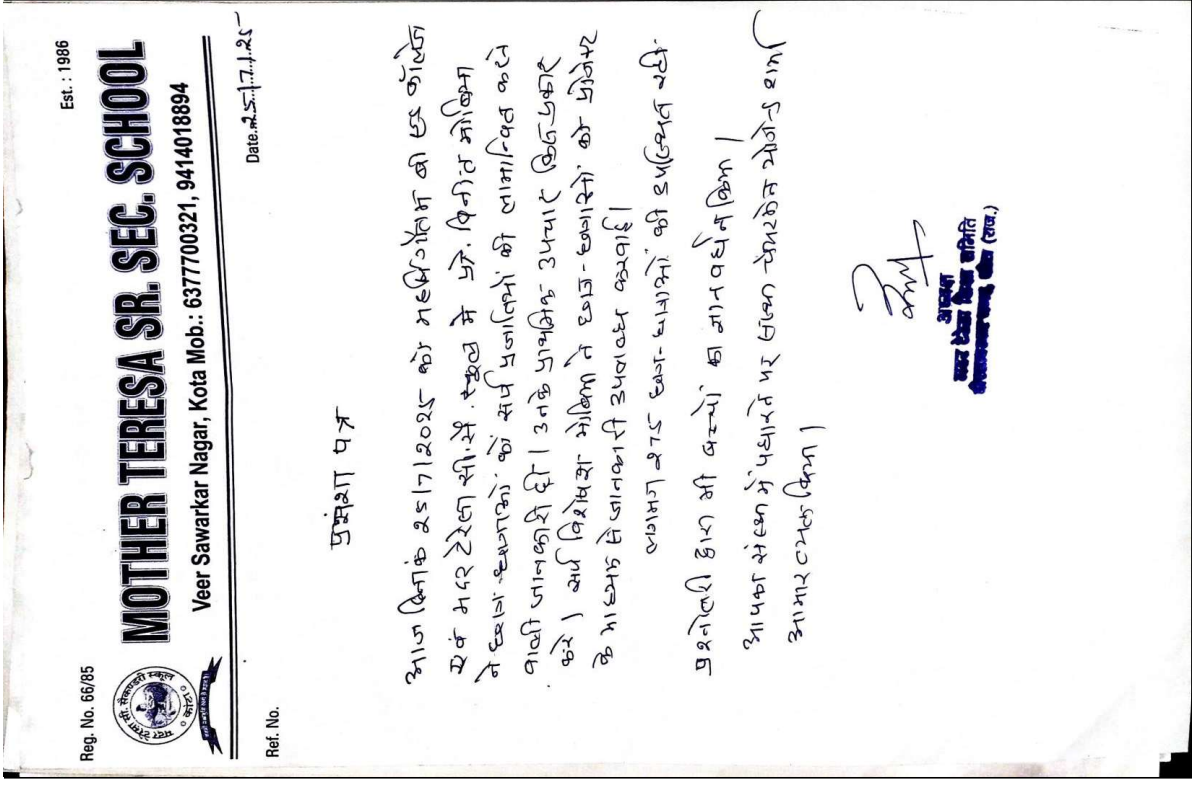 Reg. No. 66/85
Est. : 1986
मदर टेरेसा सी. सैकण्डरी स्कूल
कोटा
MOTHER TERESA SR. SEC. SCHOOL
Veer Sawarkar Nagar, Kota Mob.: 6377700321, 9414018894
Ref. No.
Date.25.1.7.1.25
प्रशंसा पत्र
आज दिनांक 25/7/2025 को महर्षि गौतम बी एड कॉलेज
एवं मदर टेरेसा सी.से. स्कूल में प्रो. विनीत
ने छात्र-छात्राओं को सर्प प्रजातियों की लाभान्वित करने
वाली जानकारी दी। उनके प्राथमिक उपचार किस प्रकार
करे। सर्प विशेषज्ञ ने छात्र-छात्राओं को प्रोजेक्टर
के माध्यम से जानकारी उपलब्ध करवाई।
लगभग 275 छात्र-छात्राओं की उपस्थित रही.
प्रश्नोतरी द्वारा भी बच्चों का ज्ञानवर्धन किया।
आपका संस्था में पधारने पर संस्था चेयरमेन योगेन्द्र शर्मा
आभार व्यक्त किया।
अध्यक्ष
मदर टेरेसा शिक्षा समिति
वीर सावरकर नगर, कोटा (राज.)